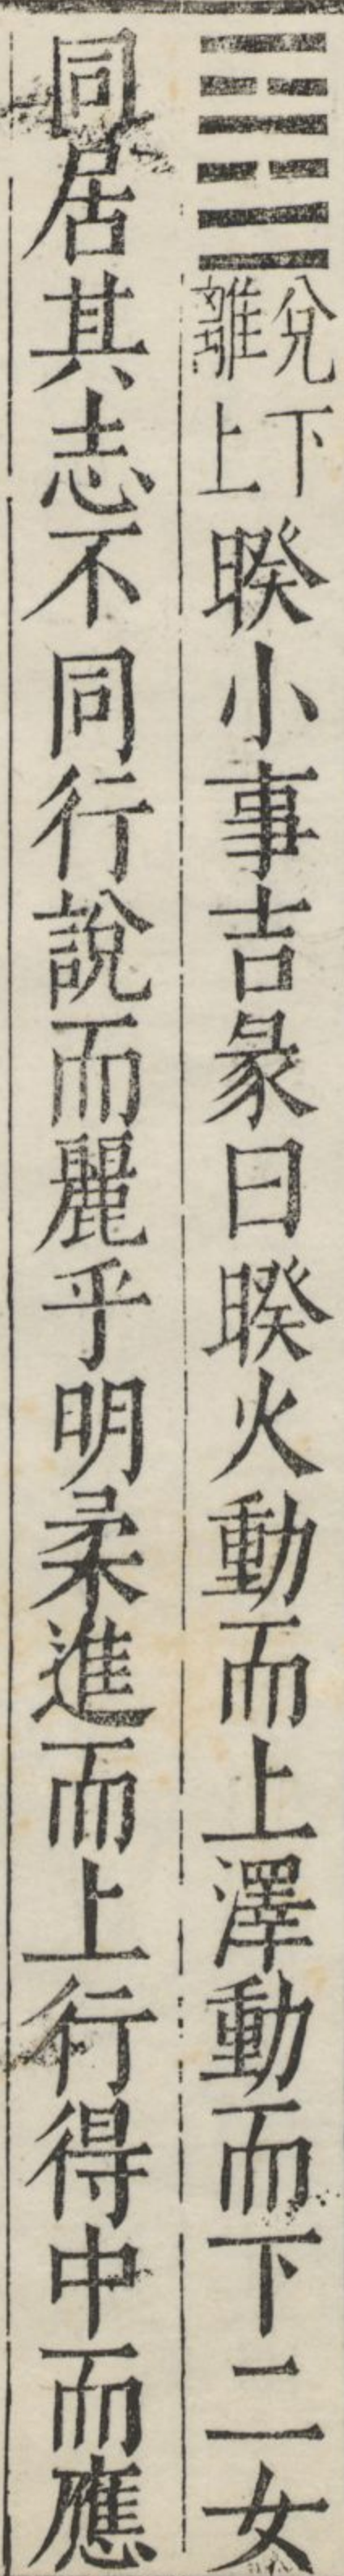 ䷥兌下離上暌小事吉彖曰暌火動而上澤動而下二女
同居其志不同行說而麗乎明柔進而上行得中而應